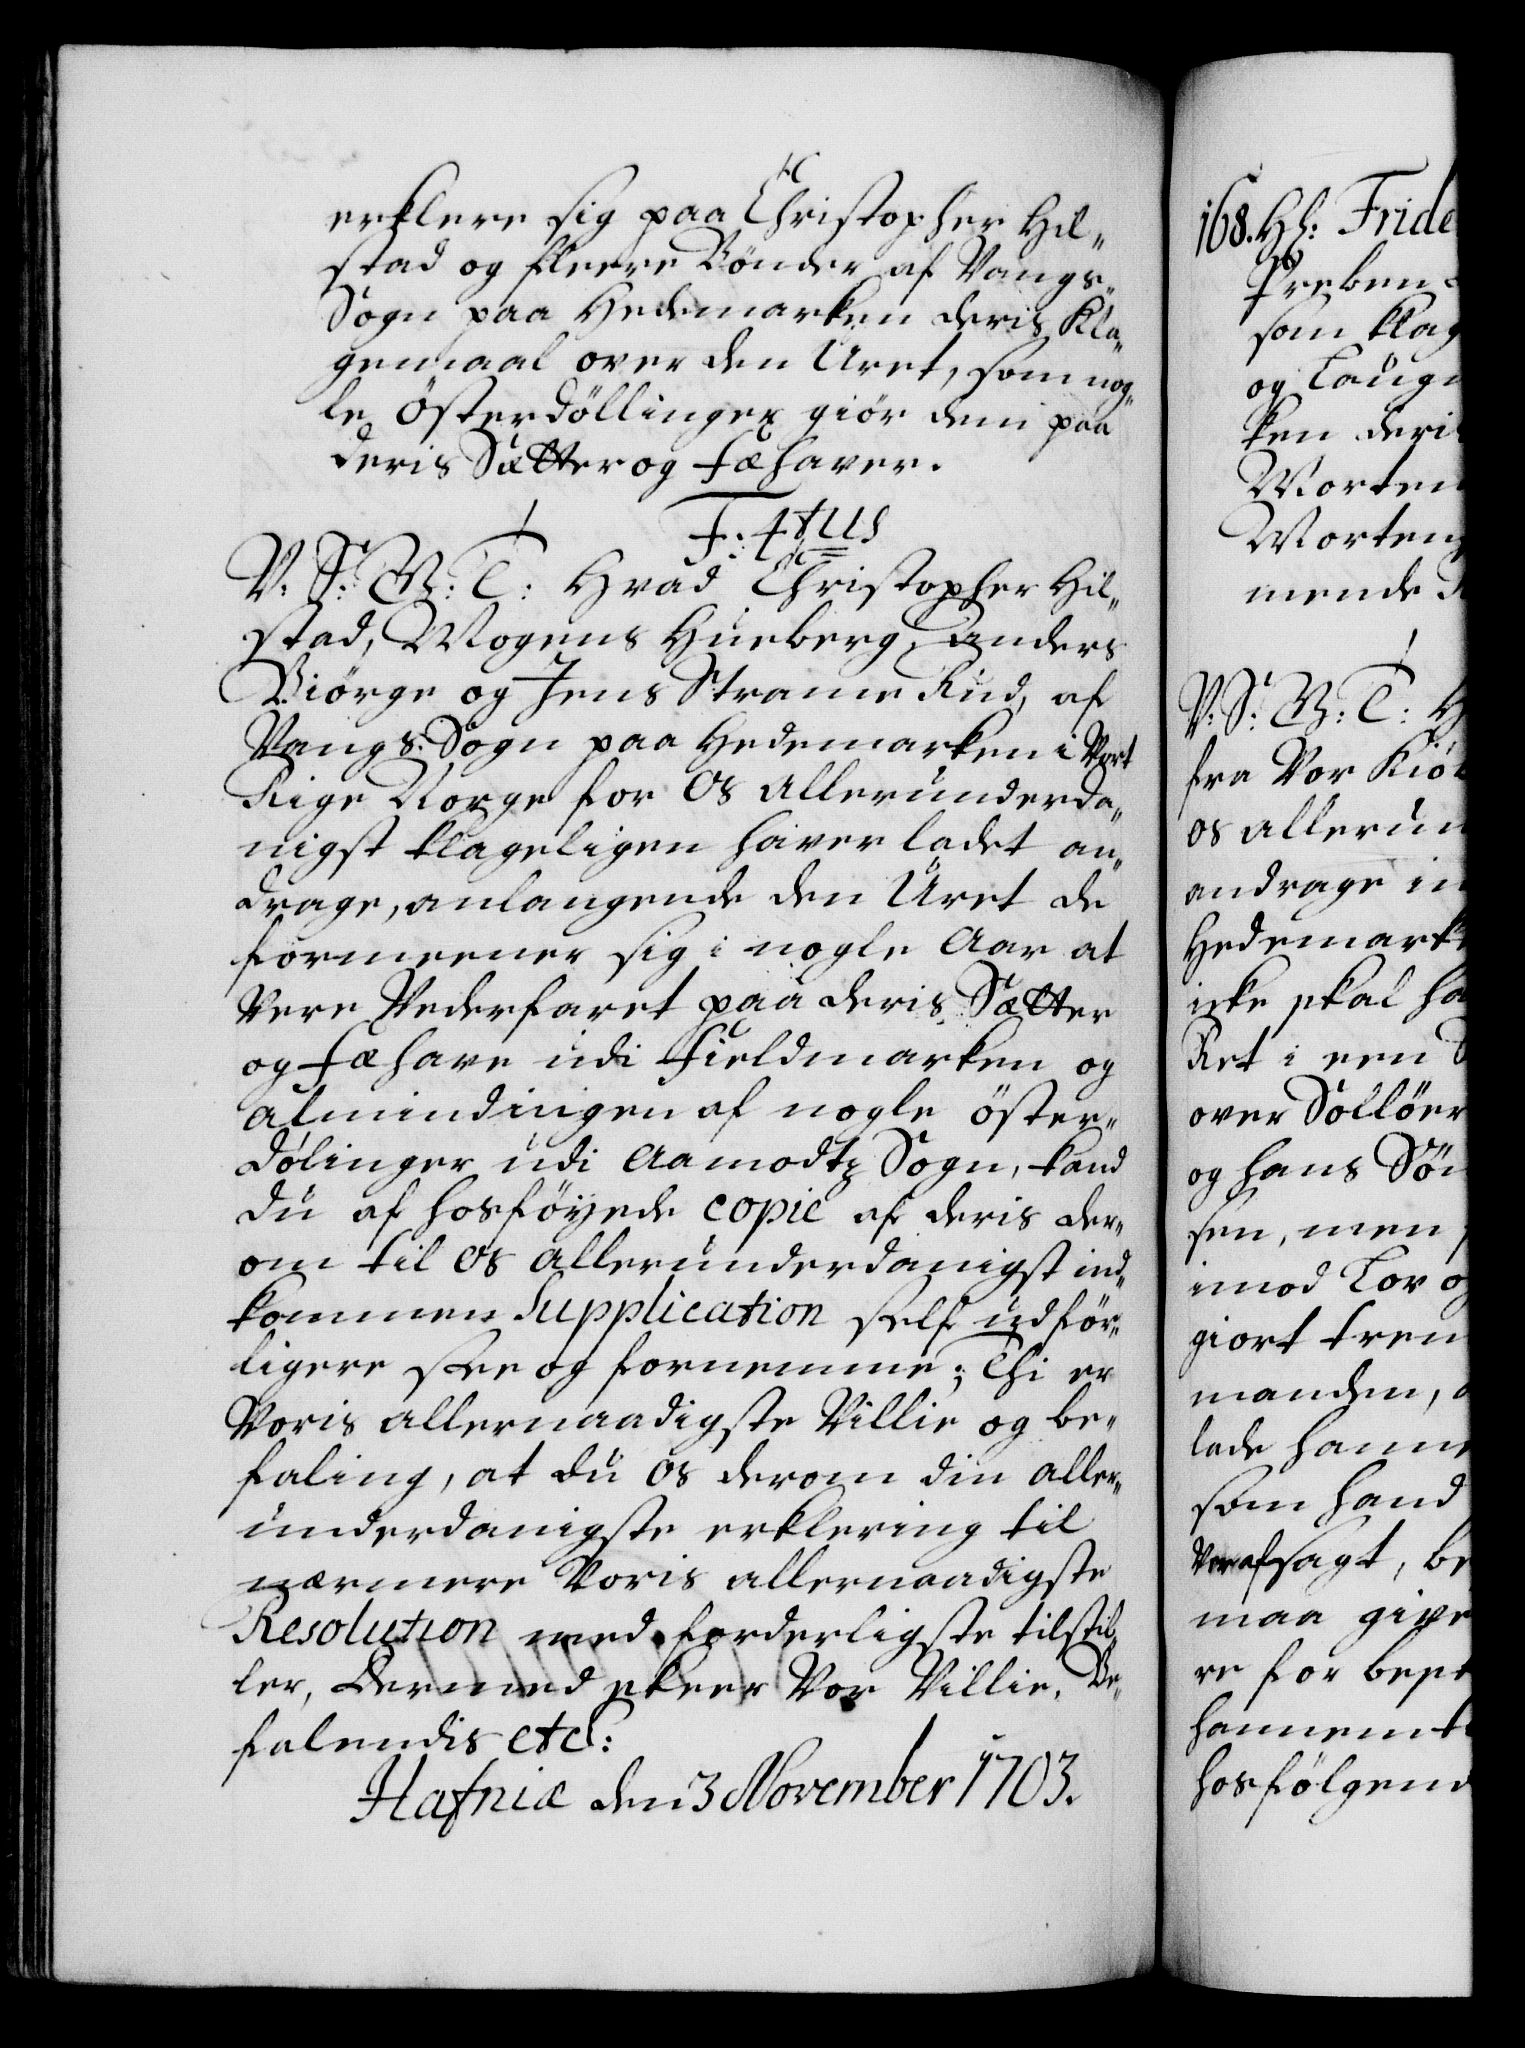 erklere sig paa Christopher Hil„
stad og fleere Bönder af Vangs„
Sogn paa Hedemarken deris Kla„
gemaal over den Uret, som nog„
le Österdöllinger giör dem paa
deris Sætter og Fæhaver.
F: 4tus
V. S: G: T: Hvad Christopher Hil„
stad, Mogens Hueberg, Anders
Biörge og Jens Strame Rud, af
Vangs Sogn paa Hedemarken i Vort
Rige Norge for Os allerunderda„
nigst klageligen haver ladet an„
drage, anlangende den Uret de
formeener sig i nogle Aar at
Vere Vederfaret paa deris Sætter
og Fæhave udi Fieldmarken og
almindingen af nogle öster„
dölinger udi Aamodtz Sogn, kand
du af hosföyede copie af deris der„
om til Os allerunderdanigst ind„
kommen Supplication self udför„
ligere see og fornemme; Thi er
Voris allernaadigste Villie og be„
faling, at du Os derom din aller„
underdanigste erklering til
nærmere Voris allernaadigste
Resolution med forderligste tilstil„
ler, Dermed skeer Vor Villie, Be„
falendis etc:
Hafniæ den 3 November 1703.
168. Hl: Fride
Preben
som klag
og Laug
ken deri
Morten
Morten
mende
V: S: G: T: H
fra Vor Kiö
os allerun
andrage in
Hedemark
icke skal ha
Ret i een
over Sollöer
og hans Sön
sen, men
imod Lov o
giort tren
manden,
lade hann
som hand
Vor afsagt, be
maa give
re for best
hannem t
hosfölgend